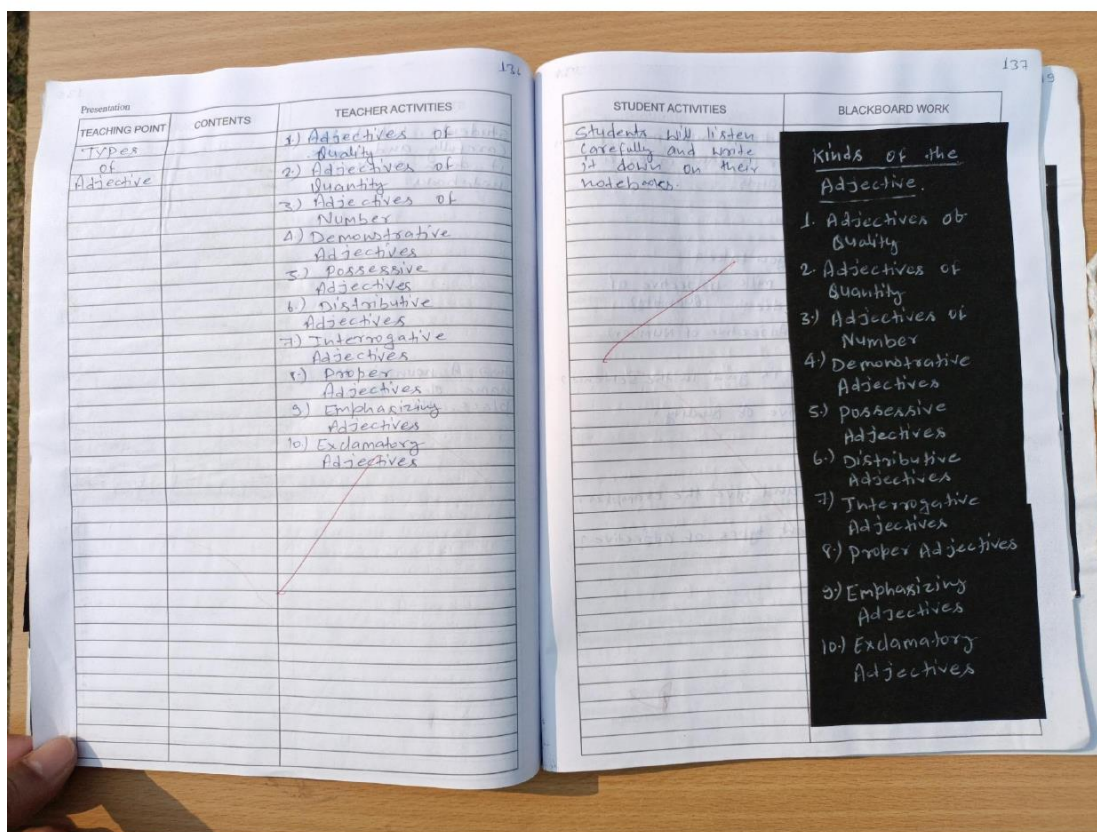 136
Presentation
TEACHING POINT
CONTENTS
TEACHER ACTIVITIES
Types
of
Adjective
1.) Adjectives of
Quality
2.) Adjectives of
Quantity
3) Adjectives of
Number
4.) Demonstrative
Adjectives
5.) Possessive
Adjectives
6.) Distributive
Adjectives
7) Interrogative
Adjectives
8.) Proper
Adjectives
9) Emphasizing
Adjectives
10) Exclamatory
Adjectives
137
STUDENT ACTIVITIES
BLACKBOARD WORK
Students will listen
carefully and write
it down on their
notebooks.
Kinds of the
Adjective.
1. Adjectives of
Quality
2. Adjectives of
Quantity
3.) Adjectives of
Number
4.) Demonstrative
Adjectives
5.) Possessive
Adjectives
6.) Distributive
Adjectives
7) Interrogative
Adjectives
8.) Proper Adjectives
9.) Emphasizing
Adjectives
10.) Exclamatory
Adjectives